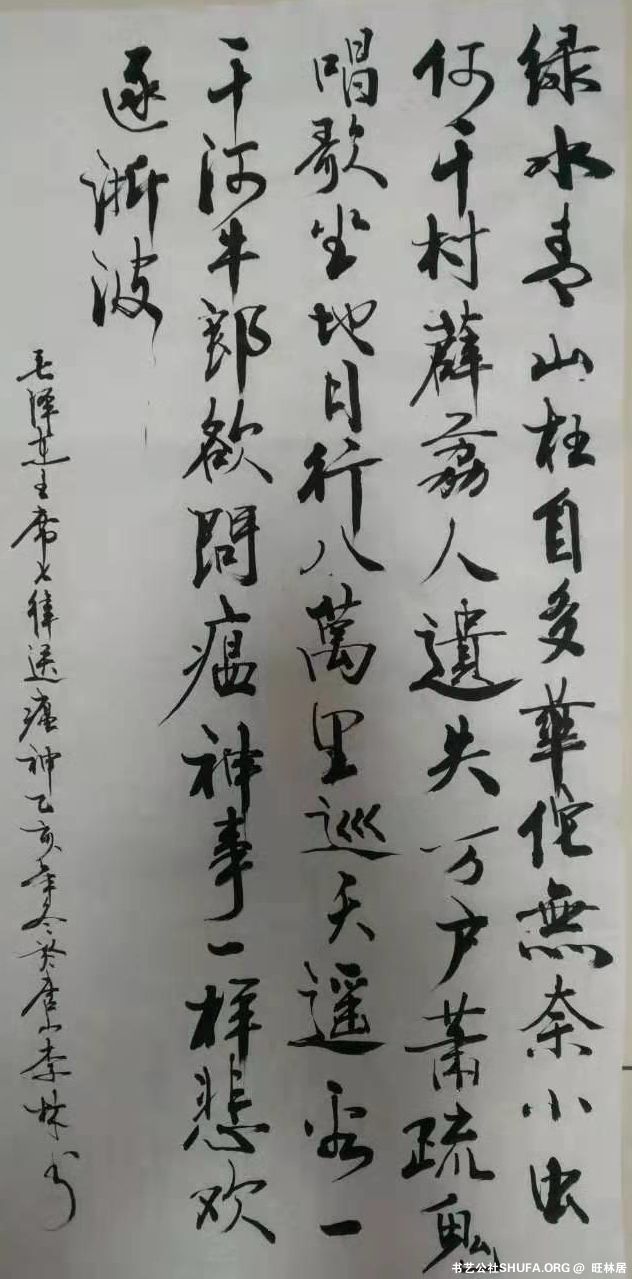 绿水青山枉自多華佗無奈小虫
何千村薜荔人遺失万户萧疏鬼
唱歌坐地日行八萬里巡天遥看一
千河牛郎欲問瘟神事一样悲欢
逐浙波
毛泽东主席七律送瘟神乙亥年冬於唐山李林书
书艺公社SHUFA.ORG @ 旺林居